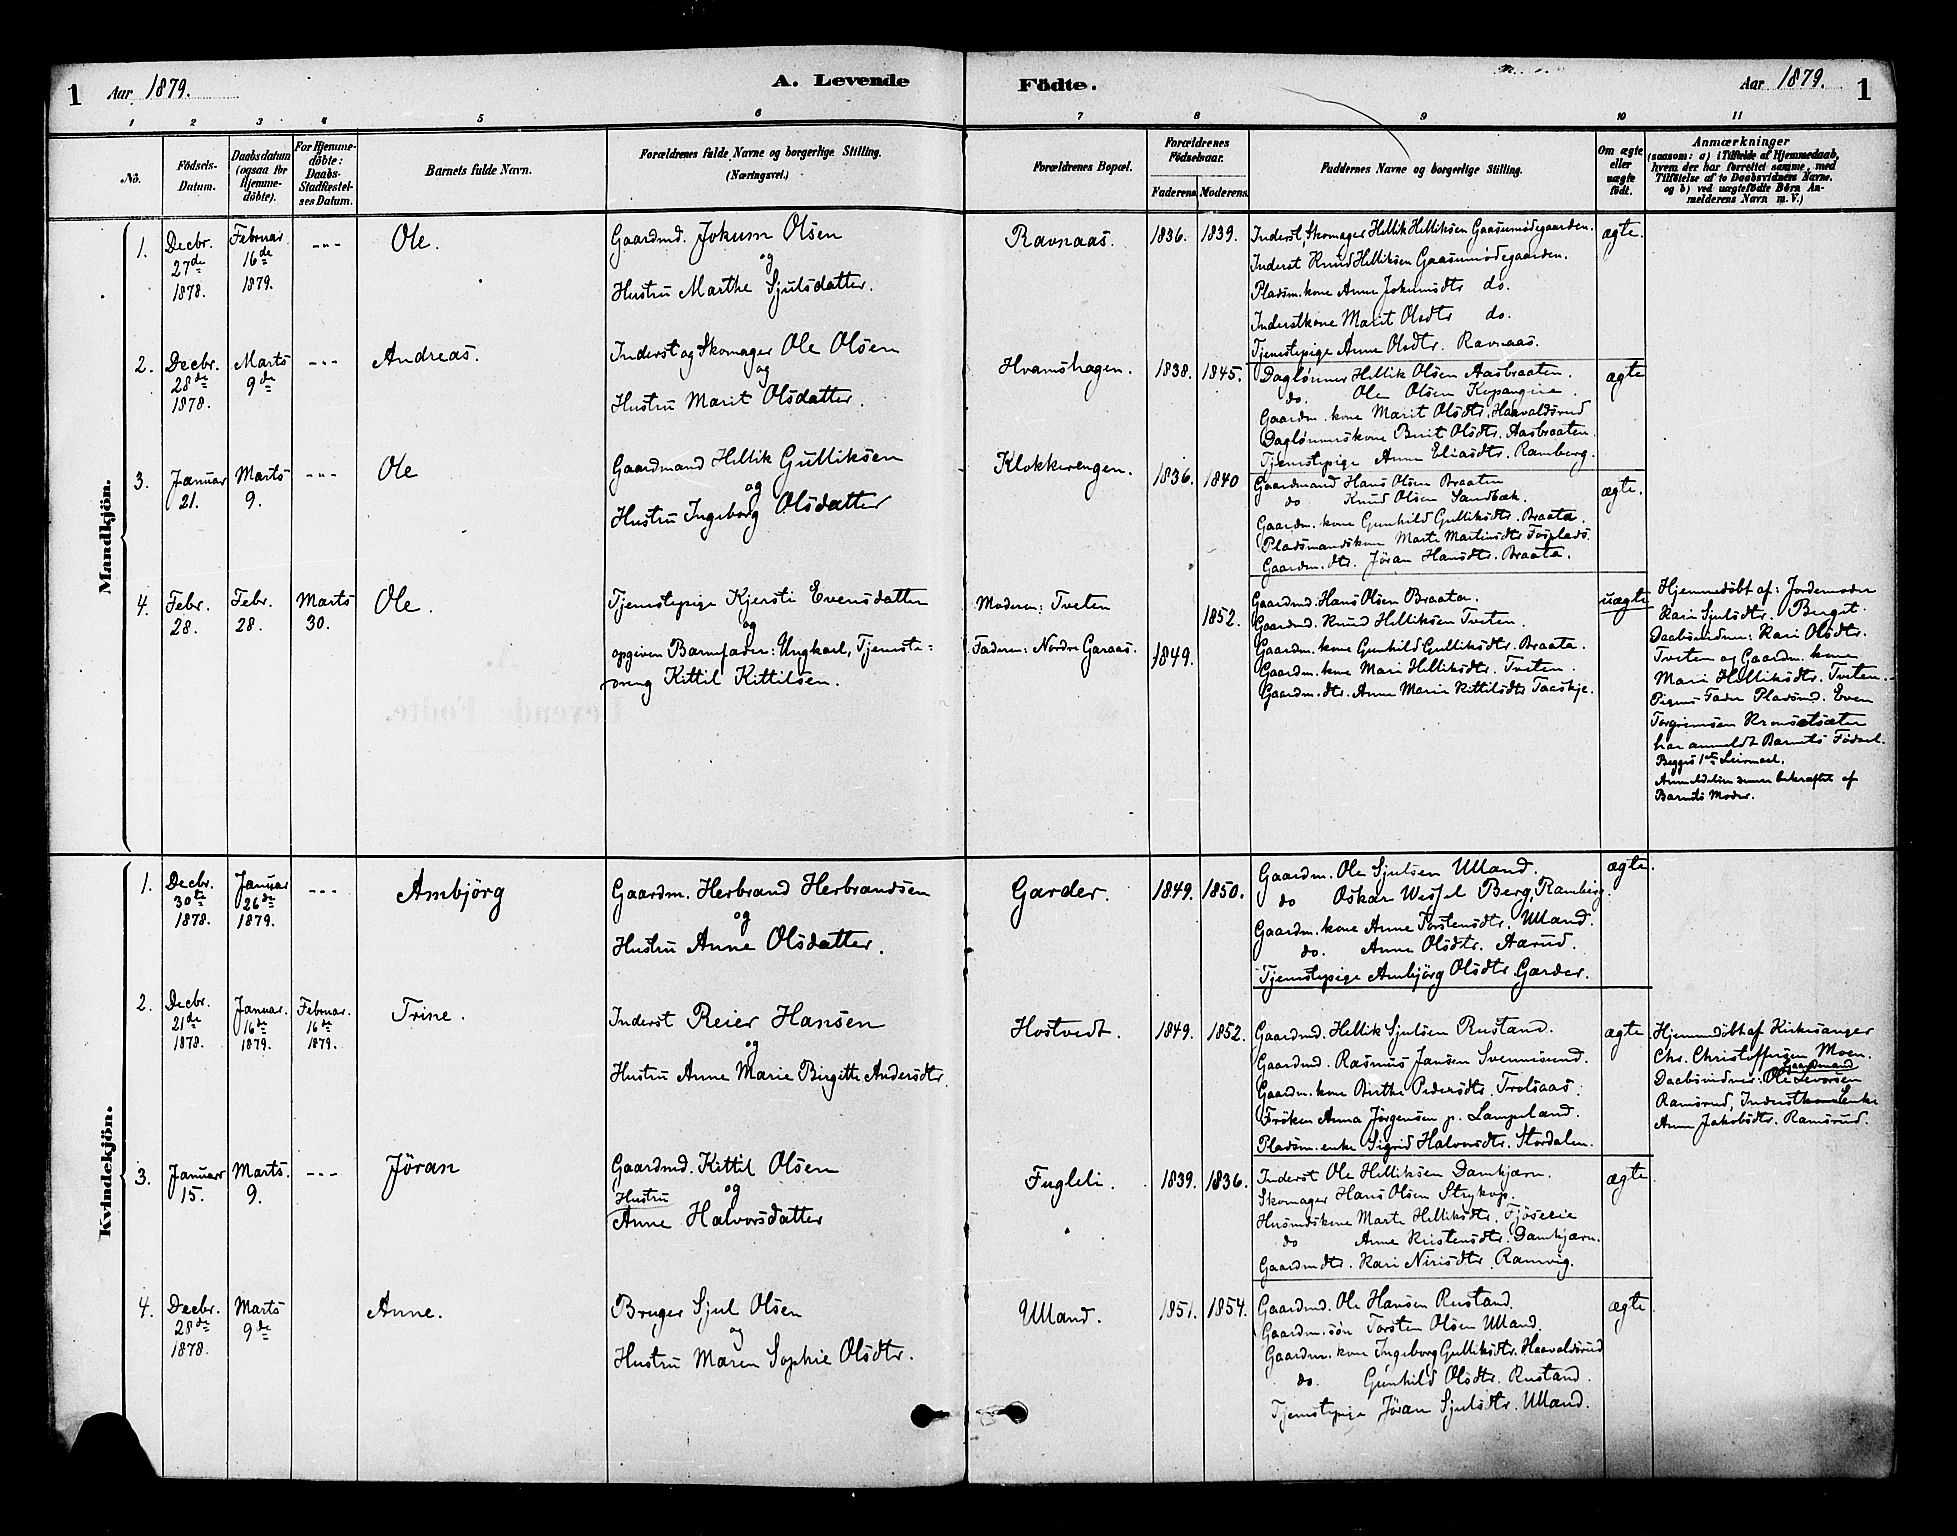 1 Aar 1879. A. Levende Födte. Aar 1879. 1
1 2 3 4 5 6 7 8 9 10 11
No. Födsels-Datum. Daabsdatum (ogsaa for Hjemme-döbte). For Hjemme-döbte: Daabs-Stadfæstel-ses Datum. Barnets fulde Navn. Forældrenes fulde Navne og borgerlige Stilling. (Næringsvei.) Forældrenes Bopæl. Forældrenes Födselsaar. Faderens. Moderens. Faddernes Navne og borgerlige Stilling. Om ægte eller uægte födt. Anmærkninger (saasom: a) i Tilfælde af Hjemmedaab, hvem der har forrettet samme, med Tilföielse af to Daabsvidners Navne, og b) ved uægtefödte Börn An-melderens Navn m. V.)
Mandkjön.
1. Decbr. 27de 1878. Februar 16de 1879. --- Ole.
Gaardmd. Jokum Olsen
og
Hustru Marthe Sjulsdatter.
Ravnaas. 1836. 1839.
Inderst Skomager Hellik Helliksen Gaasumödegaarden.
Inderst Knud Helliksen Gaasumödegaarden.
Pladsm. kone Anne Jokumsdtr do.
Inderstkone Marit Olsdtr do.
Tjenstepige Anne Olsdtr. Ravnaas.
ægte.
2. Decbr. 28de 1878. Marts 9de --- Andreas.
Inderst og Skomager Ole Olsen
og
Hustru Marit Olsdatter.
Hvamshagen. 1838. 1845.
Daglönner Hellik Olsen Aasbraaten.
do. Ole Olsen
Gaardm. kone Marit Olsdtr. Haavaldsrud
Daglönnerskone Berit Olsdtr. Aasbraaten.
Tjenstepige Anne Eliasdtr. Ramberg.
ægte
3. Januar 21. Marts 9. --- Ole
Gaardmand Hellik Gulliksen
og
Hustru Ingeborg Olsdatter
Klokkerengen. 1836. 1840
Gaardmand Hans Olsen Braaten
do Knud Olsen Sandbæk.
Gaardm. kone Gunhild Gulliksdtr. Braata.
Pladsmandskone Marte Martinsdtr Fosplads.
Gaardm. dtr. Jöran Hansdtr. Braata.
ægte.
4. Febr. 28. Febr. 28. Marts 30. Ole.
Tjenstepige Kjersti Evensdatter
og
opgiven Barnefader: Ungkarl, Tjeneste-
dreng Kittil Kittilsen.
Moderen: Tveten
Faderen: Nordre Garaas. 1849. 1852.
Gaardmd. Hans Olsen Braata.
Gaardmd. Knud Helliksen Tveten.
Gaardm. kone Gunhild Gulliksdtr. Braata.
Gaardm. kone Mari Helliksdtr. Tveten.
Gaardm. dtr. Anne Marie Kittilsdtr
uægte
Hjemmedöbt af: Jordemoder
Kari Sjulsdtr. Berget.
Daabsvidner: Kari Olsdtr.
Tveten og Gaardm. kone
Mari Helliksdtr. Tveten.
Pigens Fader Pladsmd. Even
Torgrimsen
har anmeldt Barnets Fødsel.
Begges 1ste Leiermaal.
Anmeldelsen senere bekræftet af
Barnets Moder.
Kvindekjön.
1. Decbr. 30te 1878. Januar 26de 1879. --- Ambjörg
Gaardm. Herbrand Herbrandsen
og
Hustru Anne Olsdatter.
Garder. 1849. 1850.
Gaardm. Ole Sjulsen Ulland.
do Oskar Wessel Berg, Ramberg.
Gaardm. kone Anne Torstensdtr. Ulland.
do. Anne Olsdtr. Aarud.
Tjenstepige Ambjörg Olsdtr. Garder.
ægte.
2. Decbr. 21de 1878. Januar. 16de 1879. Februar. 16de 1879. Trine.
Inderst Reier Hansen
og
Hustru Anne Marie Birgitte Andersdtr.
Hostvedt. 1849. 1852.
Gaardmd. Hellik Sjulsen Rustand.
Gaardmd. Rasmus Jansen Svennesund.
Gaardm. kone Birthe Pedersdtr. Trolsaas.
Fröken Anna Jörgensen p. Lampeland.
Pladsm. enke Sigrid Halvorsdtr. Stordalen.
ægte.
Hjemmedöbt af Kirkesanger
Chr. Christoffersen Moen.
Daabsvidner: Gaardmand Ole Levorsen
Ramsrud, Inderstkone Lenke
Anne Jakobsdtr. Ramsrud.
3. Januar 15. Marts. 9. --- Jöran
Gaardmd. Kittil Olsen
og
Hustru
Anne Halvorsdatter
Fugleli. 1839. 1836.
Inderst Ole Helliksen Damkjærn.
Skomager Hans Olsen Strykop.
Husmdskone Marte Helliksdtr.
do Anne Kristensdtr. Damkjærn.
Gaardmdtr. Kari Nirisdtr. Ramvig.
ægte
4. Decbr. 28de 1878. Marts 9de Anne.
Bruger Sjul Olsen
og
Hustru Maren Sophie Olsdtr.
Ulland. 1851. 1854.
Gaardmd. Ole Hansen Rustand.
Gaardm. sön Torsten Olsen Ulland.
Gaardm. kone Ingeborg Gulliksdtr. Haavaldsrud
do. Gunhild Olsdtr. Rustand.
Tjenstepige Jöran Sjulsdtr. Ulland.
ægte